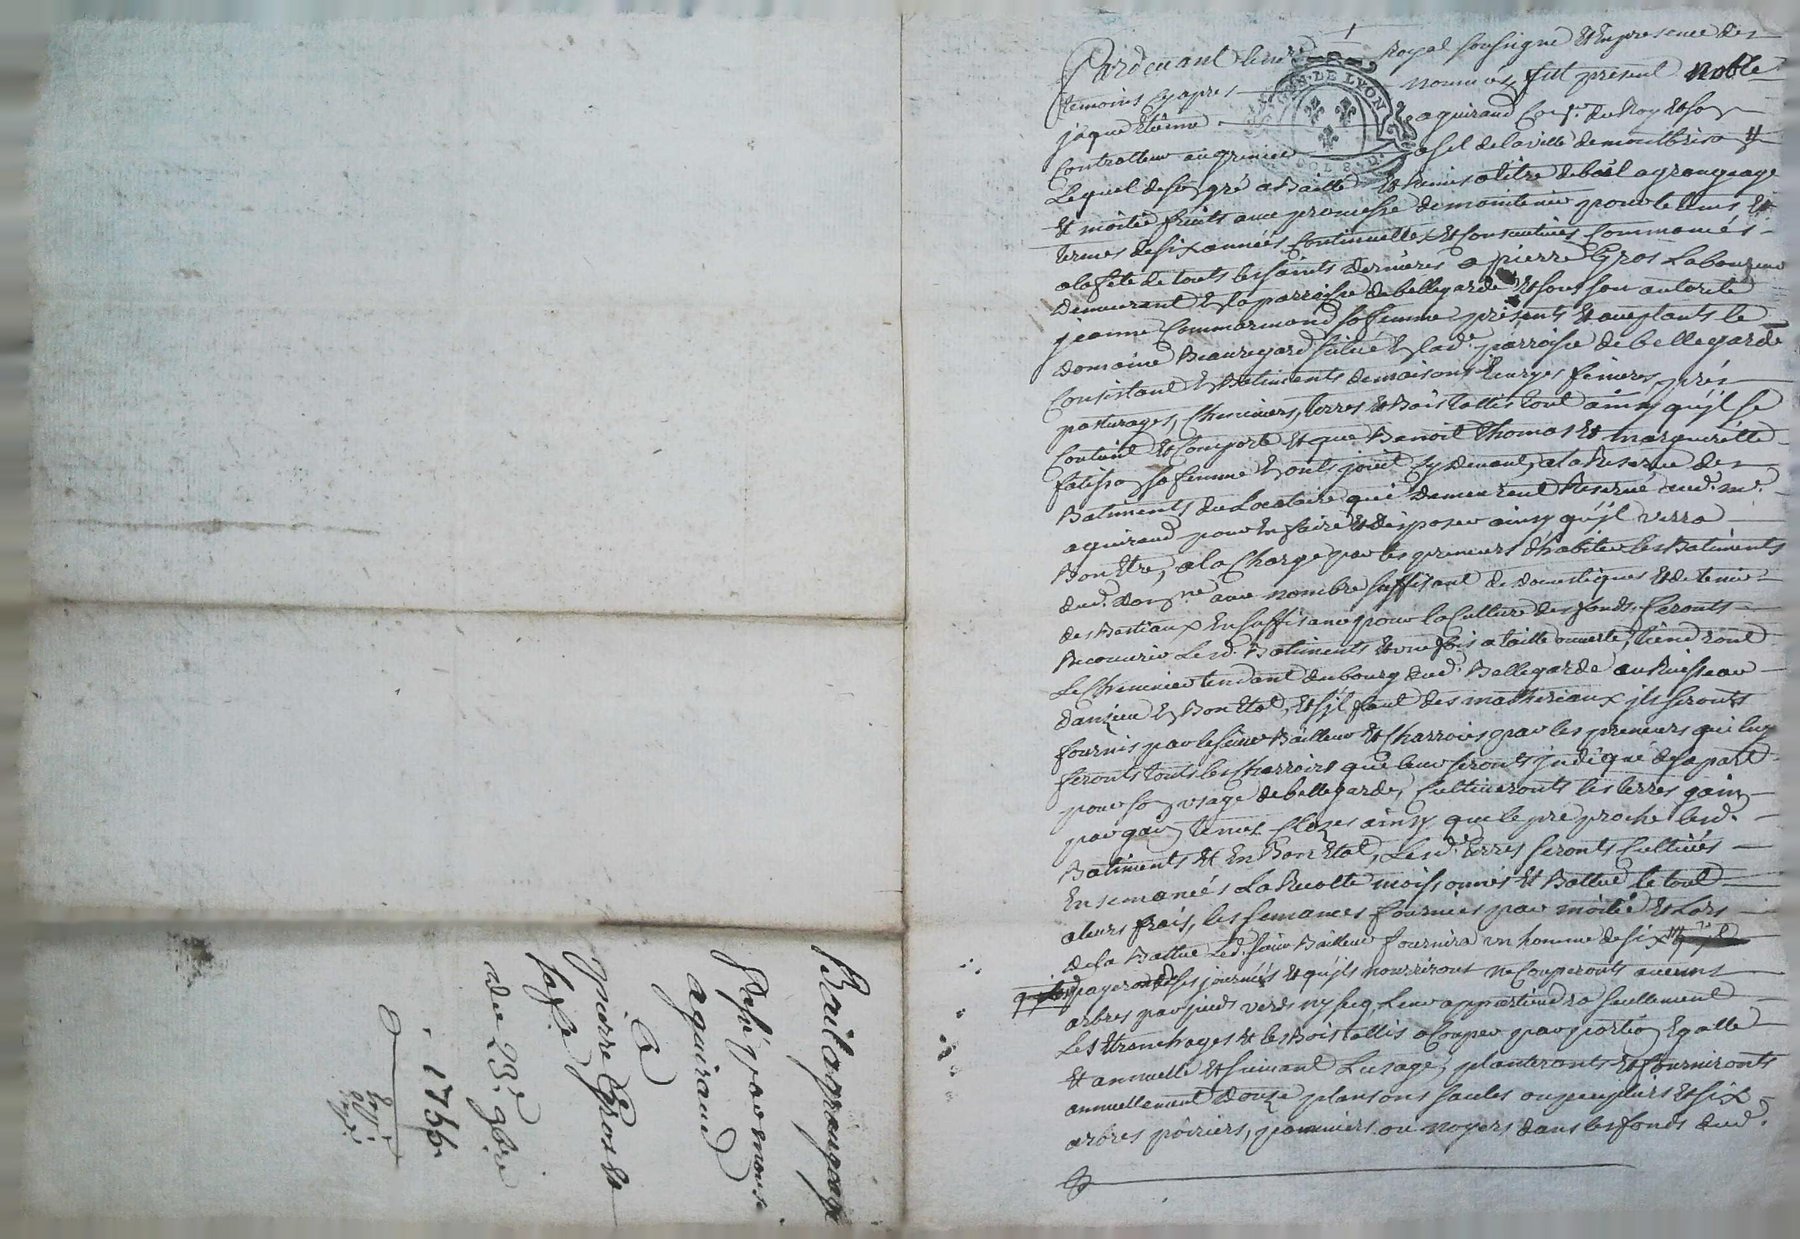 Bail a grangeage
passé par mons.r
aguiraud
à
pierre Gros &
sa fe.
du 23.e 9bre
1766
1
Pardevant le no.re Royal soussigné Et En presence des
temoins cy apres nommés, fut present noble
jaque Etienne aguiraud Con.er du Roy Et son
Controlleur au grenier a sel de la ville de montbrison
GEN. DE LYON
Lequel de son gré a Baillé Et Remis a titre de bail a grangeage
Et moitié fruits avec promesse de maintenir pour le tems Et
termes de six années Continuelles Et Consecutives Commancés
a la fete de touts les saints derniere a pierre Gros Laboureur
demeurant En la parroisse de bellegarde Et sous son autorité
jeanne Commarmond sa femme presents Et acceptants le
domaine Beauregard situé En lad. parroisse de bellegarde
Consistant En Batiments de maisons Ecuryes fenieres, prés
pasturages, Cheneviers, terres Et Bois tallis tout ainsy qu'jl se
Contient Et Comporte Et que Benoit Thomas Et margueritte
fatisson sa femme En onts jouit cy devant, a la Reserve des
Batiments du Locataire qui demeurent Reservé aud. mr.
aguiraud pour En faire Et disposer ainsy qu'jl verra
Bon Etre, a la Charge par les preneurs d'habiter les Batiments
dud. dom.ne avec nombre suffisant de domestiques Et de tenir
des Bestiaux En suffisance pour la Culture des fonds, feronts
Recouvrir Lesd. Batiments Et une fois a taille ouverte, tiendront
Le Cheminier tendant du bourg dud. Bellegarde au Ruisseau
d'anzieu En Bon Etat, Et s'jl faut des matheriaux jls seronts
fournis par le sieur Bailleur Et Charroiés par les preneurs qui luy
feronts touts les Charrois qui leur seronts jndiqué de sa part
pour son usage de bellegarde, Cultiveronts les terres gain
par gain tenues Closes ainsy que le pré proche lesd.
Batiments Et En Bon Etat, Lesd. terres seronts Cultivés
Ensemancés La Recolte moissonnés Et Battue le tout
a leurs frais, les semances fournies par moitié Et Lors
de la Battue Led. sieur Bailleur fournira un homme de six
payeront les journées Et qu'jls nourriront ne Couperonts aucuns
arbres par pieds verds ny secq, Leur appartiendra seullement
Les Etranchages Et les Bois tallis a Couper par portion Egalle
Et annuelle Et suivant Lusage, planteronts Et fournironts
annuellement douze plansons saules ou peupliers Et six
arbres poiriers, pommiers ou noyers dans les fonds dud.